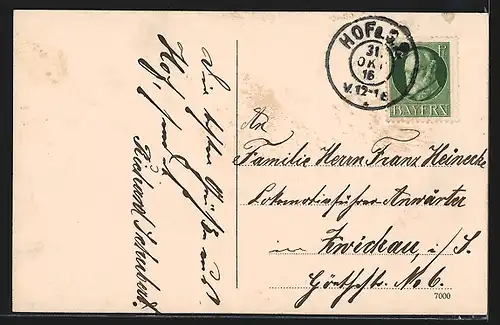 Die besten Grüße aus
Hof, sendet
Richard Schubert.
HOF
31.
OKT
16
V.12-1
BAYERN
An
Familie Herrn Franz Heinecke
Lokomotivführer Anwärter
in Zwickau, i/S.
Göthestr. No 6.
7000